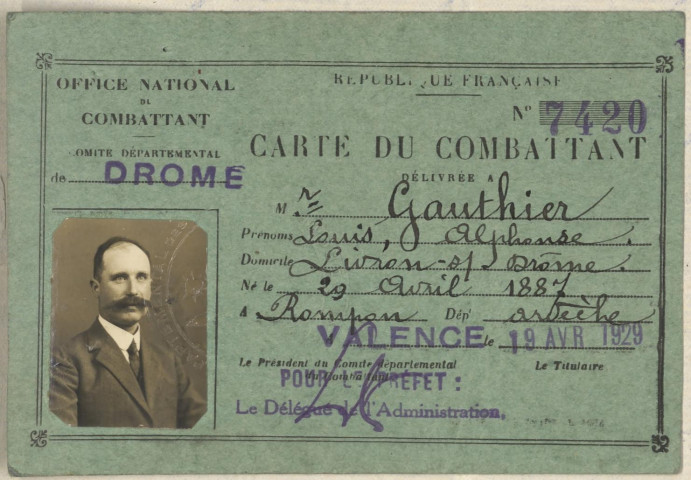 OFFICE NATIONAL
DU
COMBATTANT
COMITÉ DÉPARTEMENTAL
de DROME
RÉPUBLIQUE FRANÇAISE
N° 7420
CARTE DU COMBATTANT
DÉLIVRÉE A
M r Gauthier
Prénoms Louis, Alphonse.
Domicile Livron-s/ Drôme.
Né le 29 Avril 1887
à Rompon Dép' Ardèche
VALENCE le 19 AVR 1929
Le Président du Comité départemental
du Combattant
Le Titulaire
POUR LE PRÉFET :
Le Délégué de l'Administration,